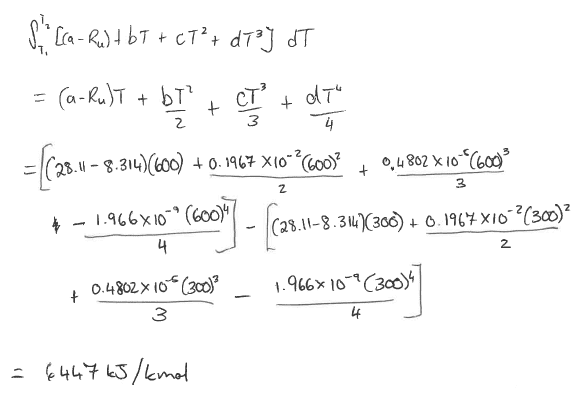 ∫_{T₁}^{T₂} [(a-Rᵤ)+bT + cT² + dT³] dT
= (a-Rᵤ)T + bT²/2 + cT³/3 + dT⁴/4
= [(28.11 - 8.314)(600) + 0.1967 ×10⁻²(600)²/2 + 0.4802 ×10⁻⁵(600)³/3
- 1.966×10⁻⁹(600)⁴/4] - [(28.11-8.314)(300) + 0.1967×10⁻²(300)²/2
+ 0.4802×10⁻⁵(300)³/3 - 1.966×10⁻⁹(300)⁴/4]
= 6447 kJ/kmol